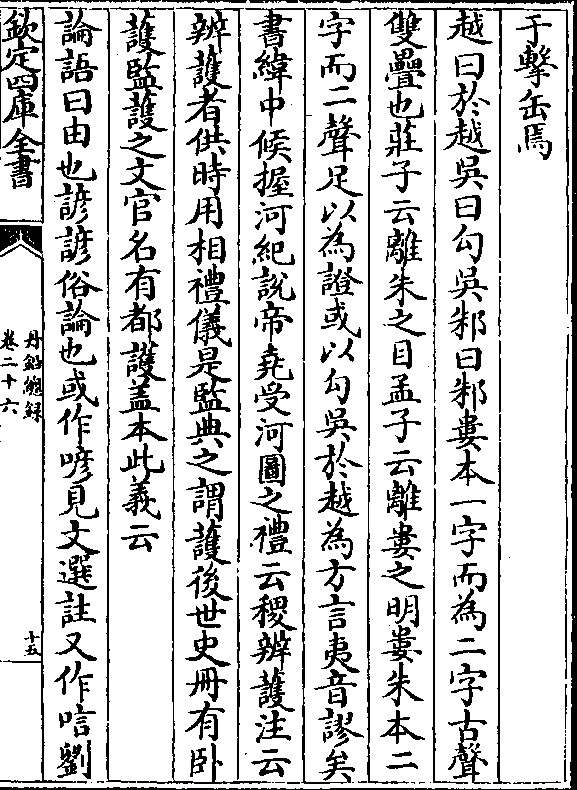 于擊缶焉
越曰於越吳曰勾吳邾曰邾婁本一字而為二字古聲
雙疊也莊子云離朱之目孟子云離婁之明婁朱本二
字而二聲足以為證或以勾吳於越為方言夷音謬矣
書緯中候握河紀說帝堯受河圖之禮云稷辨護注云
辨護者供時用相禮儀是監典之謂護後世史冊有卧
護監護之文官名有都護蓋本此義云
論語曰由也諺諺俗論也或作喭見文選註又作唁劉
欽定四庫全書
丹鉛總録
卷二十六
十五